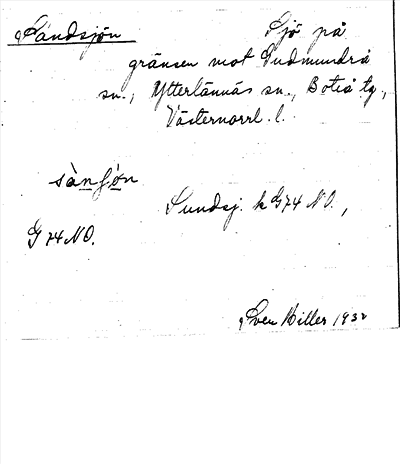 Sandsjön
Sjö på
gränsen mot Gudmundrå
sn., Ytterlännäs sn., Boteå tg,
Västernorrl. l.
sànʃön
Sundsj. k G74 NO.,
G 74 NO.
Sven Hiller 1932